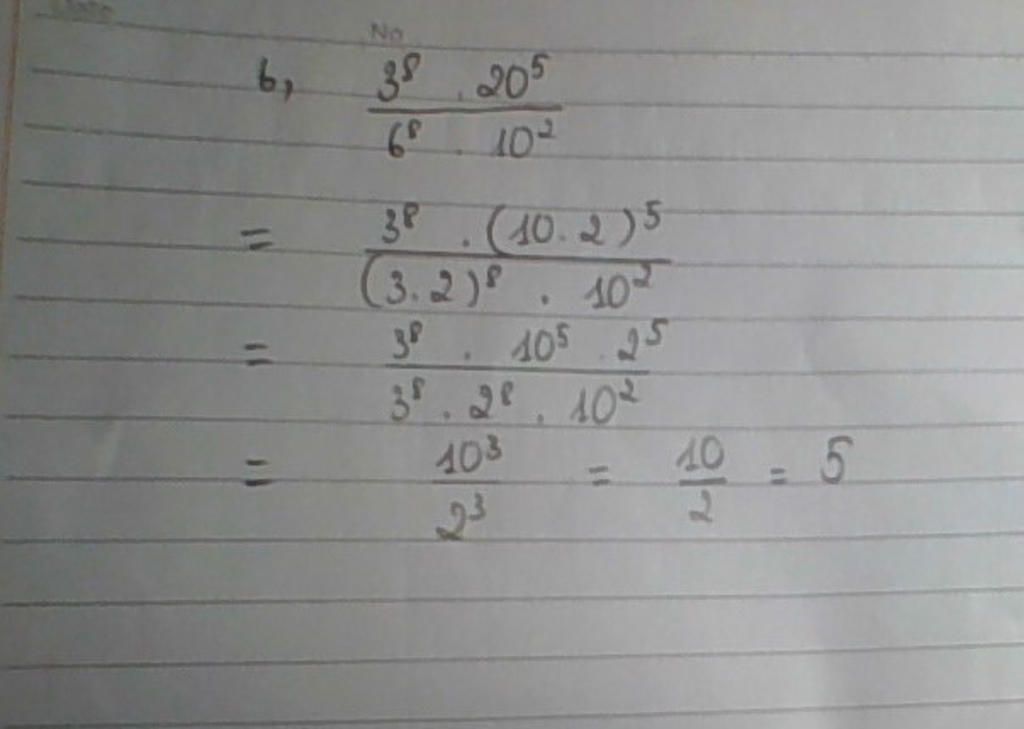 No
b, 3⁸ . 20⁵
6⁸ . 10²
= 3⁸ . (10.2)⁵
(3.2)⁸ . 10²
= 3⁸ . 10⁵ . 2⁵
3⁸ . 2⁸ . 10²
= 10³ = 10 = 5
2³ 2